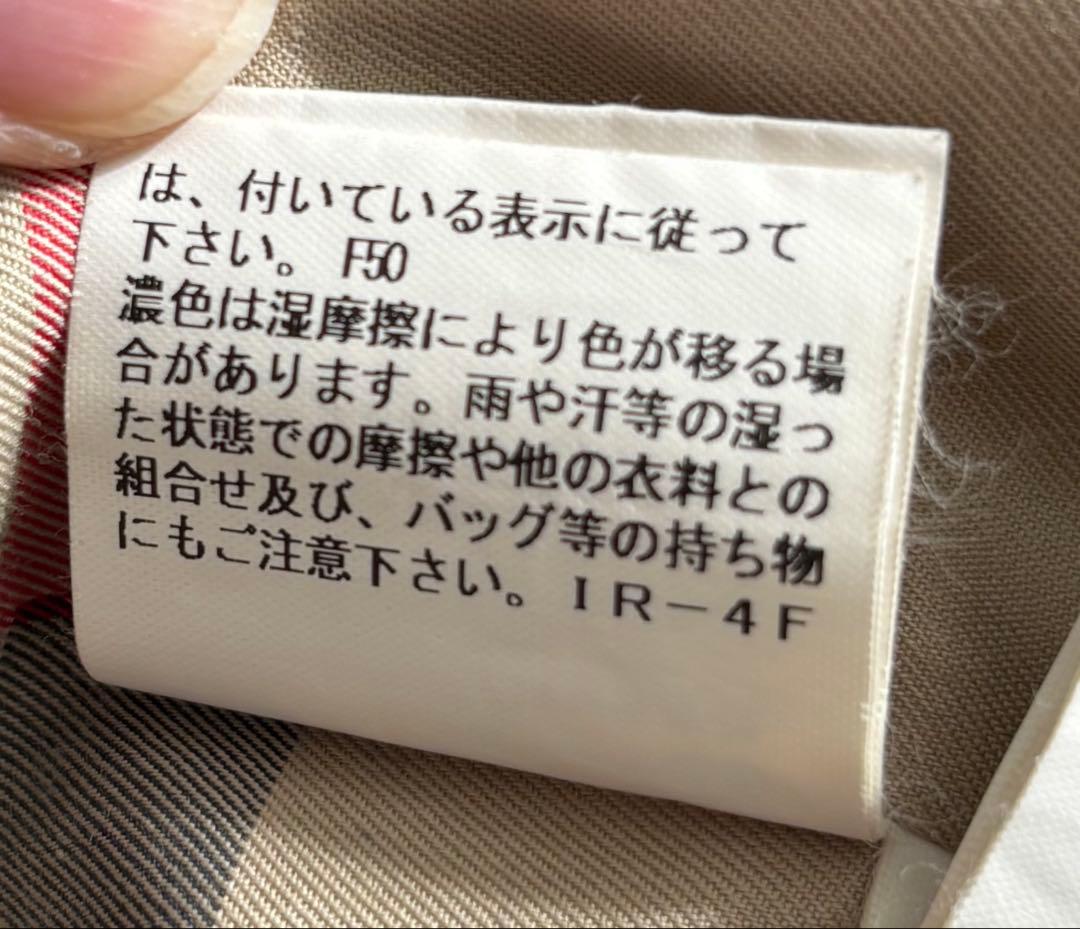 は、付いている表示に従って
下さい。 F50
濃色は湿摩擦により色が移る場
合があります。雨や汗等の湿っ
た状態での摩擦や他の衣料との
組合せ及び、バッグ等の持ち物
にもご注意下さい。ＩＲ－４Ｆ